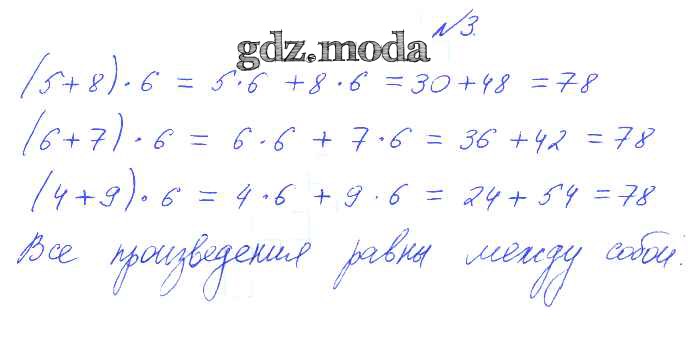 №3.
gdz.moda
(5+8)·6 = 5·6 +8·6 =30+48 =78
(6+7)·6 = 6·6 + 7·6 = 36 +42 =78
(4+9)·6 = 4·6 + 9·6 = 24+54 =78
Все произведения равны между собой.